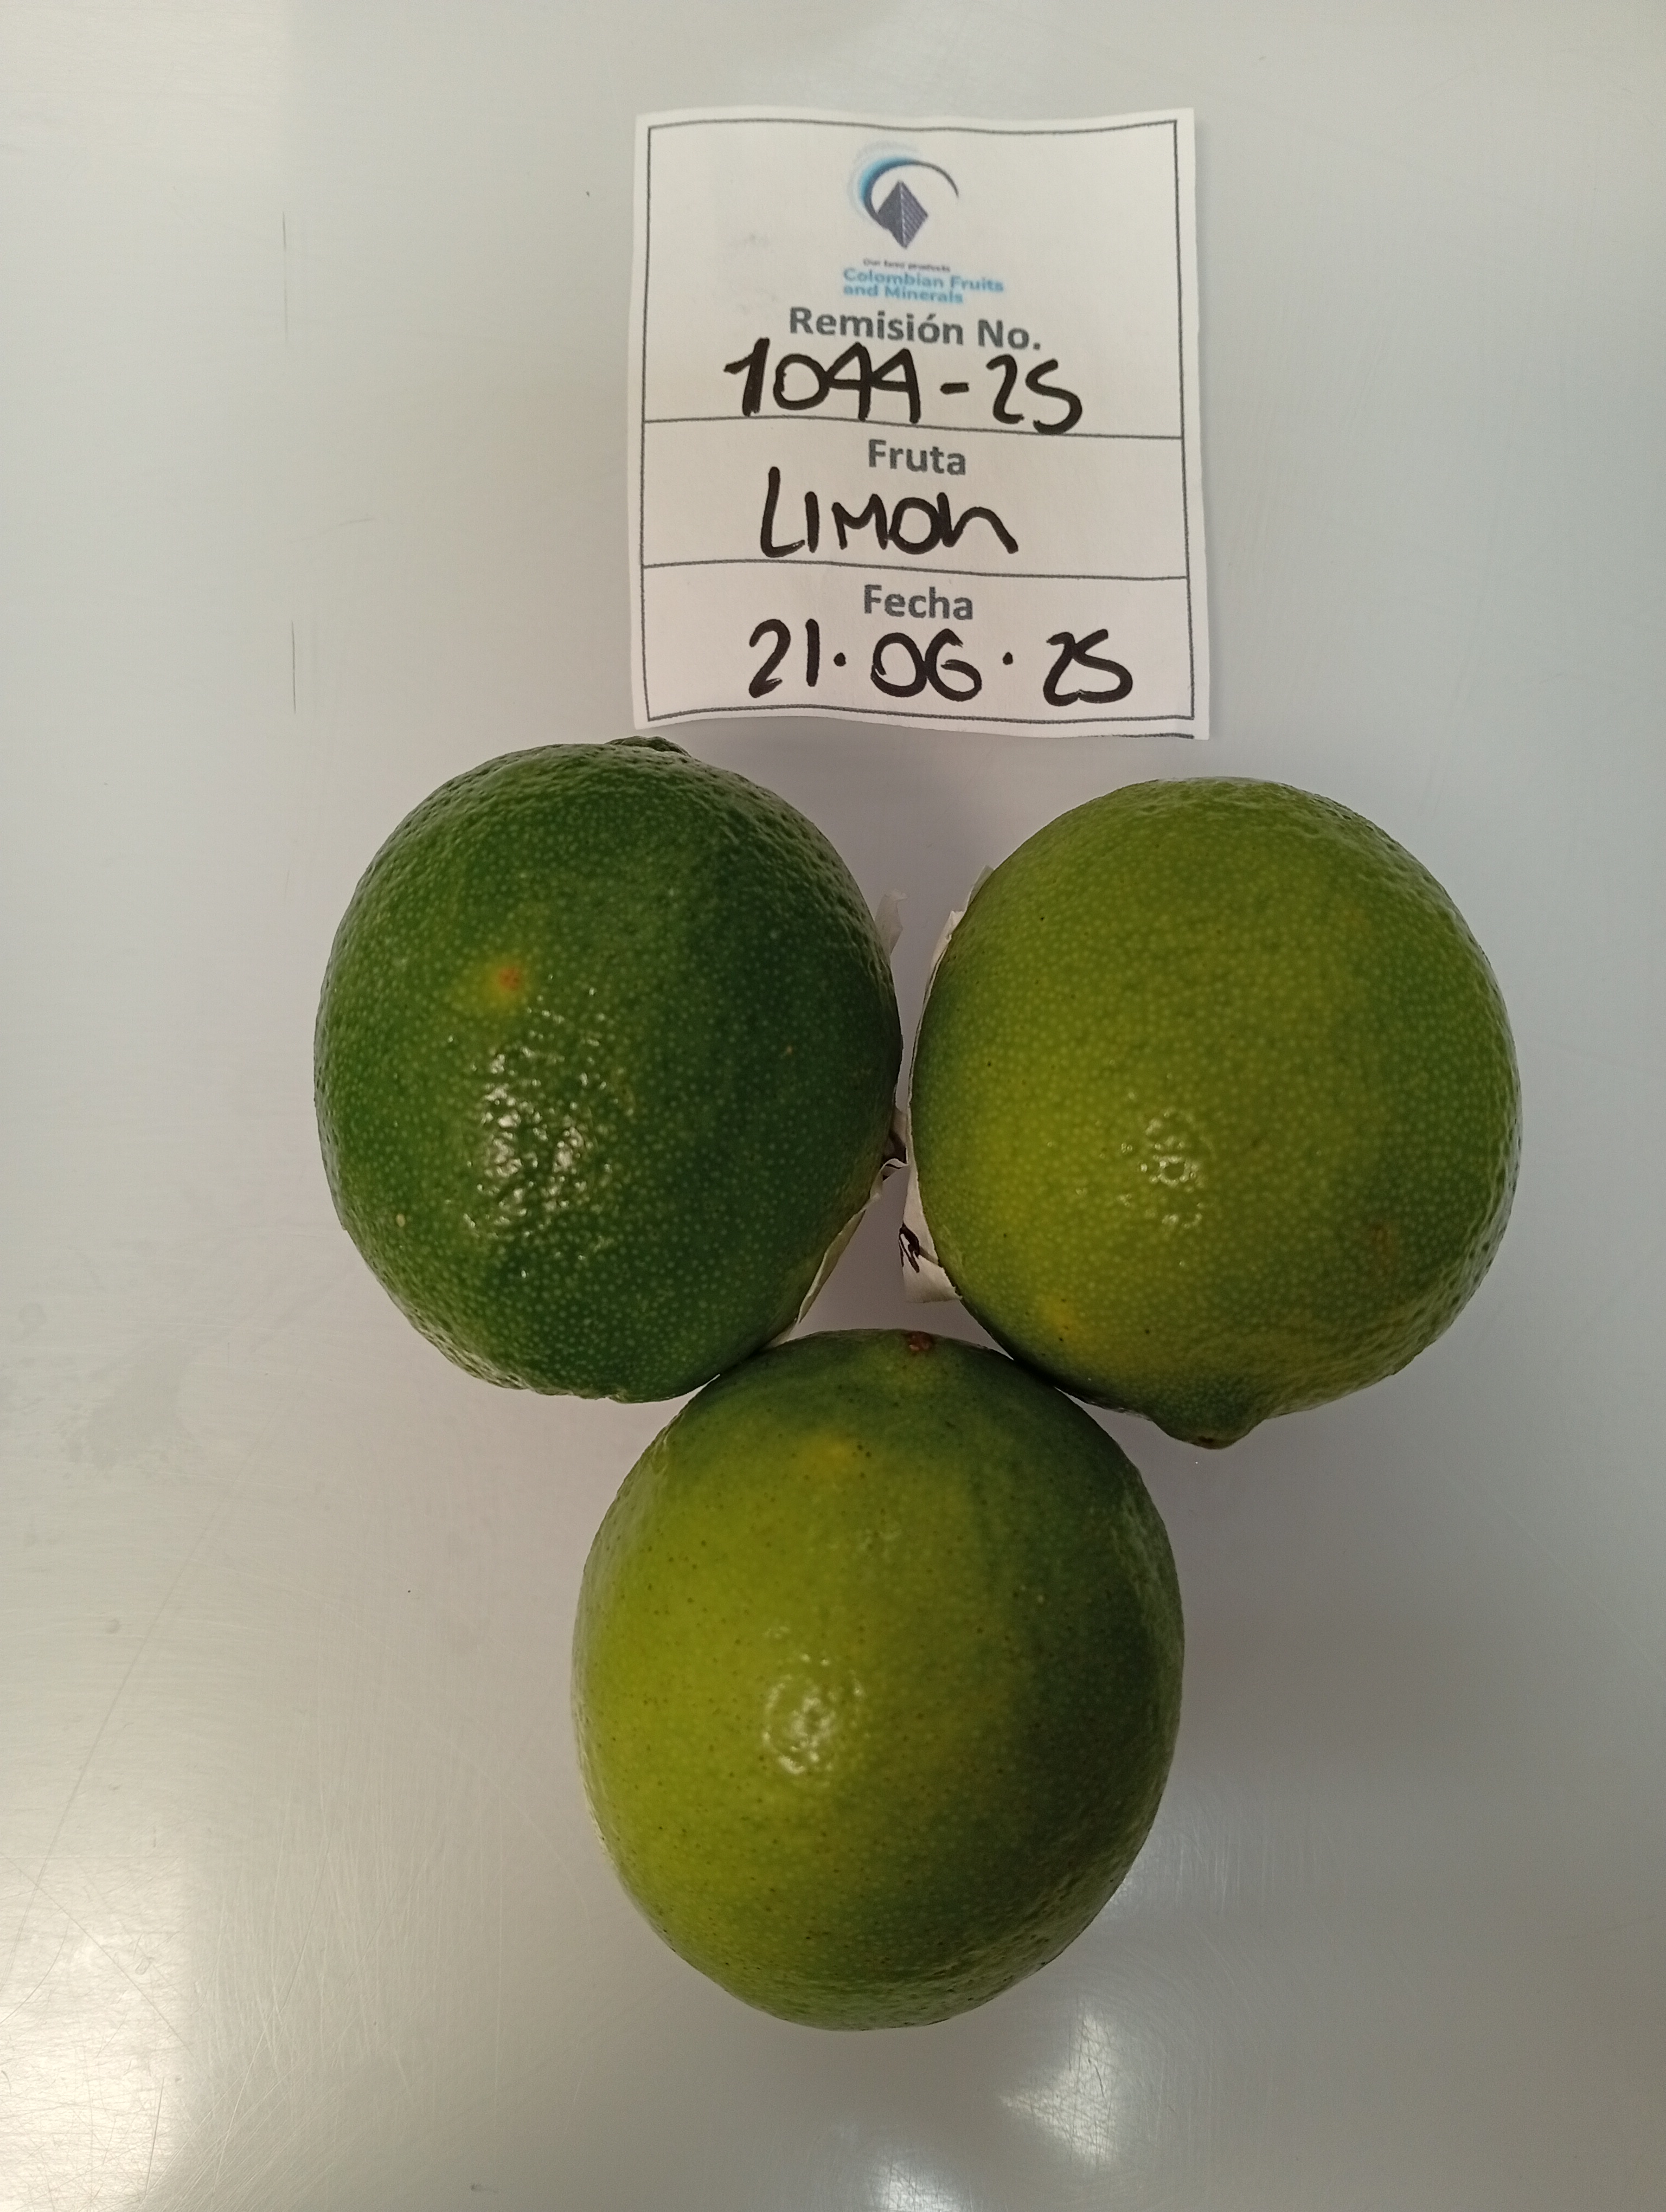 Our best products
Colombian Fruits
and Minerals
Remisión No.
1044-25
Fruta
LIMON
Fecha
21.06.25